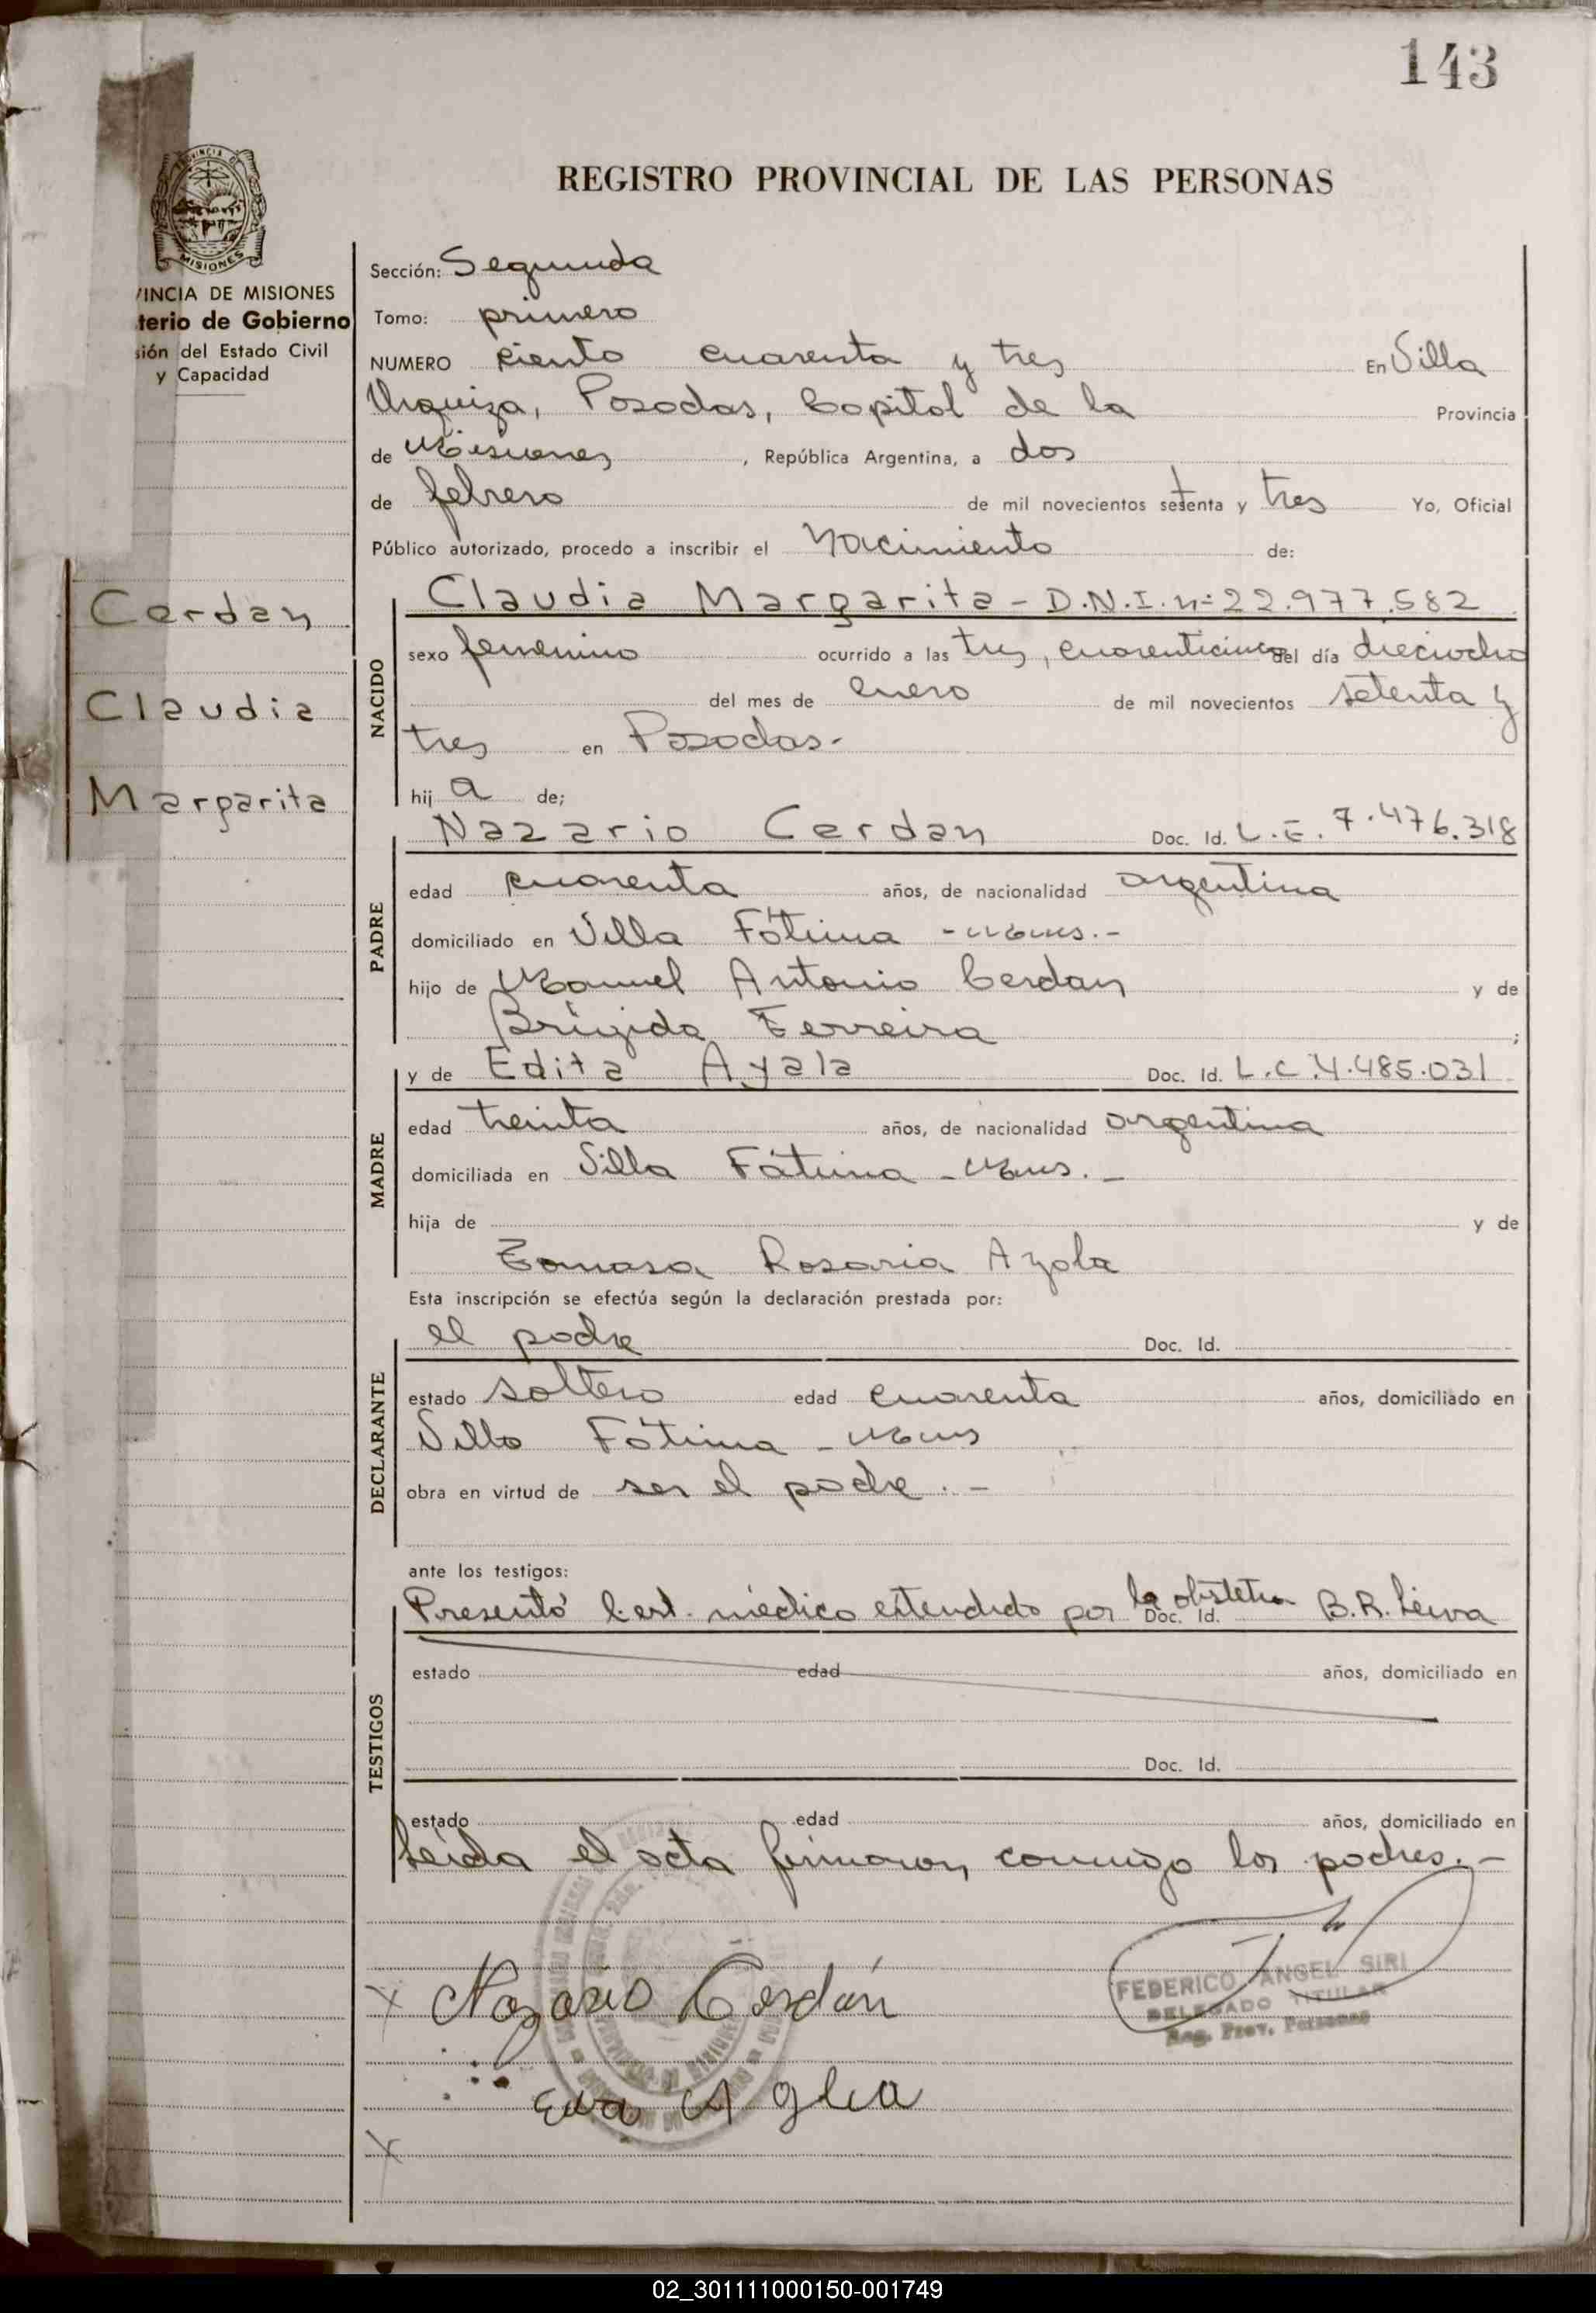 143
PROVINCIA DE
MISIONES
VINCIA DE MISIONES
terio de Gobierno
sión del Estado Civil
y Capacidad
REGISTRO PROVINCIAL DE LAS PERSONAS
Sección: Segunda
Tomo: primero
NUMERO ciento cuarenta y tres En Villa
Urquiza, Posadas, Capital de la Provincia
de Misiones, República Argentina, a dos
de febrero de mil novecientos setenta y tres Yo, Oficial
Público autorizado, procedo a inscribir el Nacimiento de:
Cerdan
Claudia
Margarita
NACIDO
Claudia Margarita - D.N.I. nº 22.977.582
sexo femenino ocurrido a las tres, cuarenticinco del día dieciocho
del mes de enero de mil novecientos setenta y
tres en Posadas.-
hij a de;
PADRE
Nazario Cerdan Doc. Id. L.E. 7.476.318
edad cuarenta años, de nacionalidad argentina
domiciliado en Villa Fátima - Mnes.-
hijo de Manuel Antonio Cerdan y de
Brígida Ferreira ;
MADRE
y de Edita Ayala Doc. Id. L.C. 4.485.031
edad treinta años, de nacionalidad argentina
domiciliada en Villa Fátima - Mnes.-
hija de y de
Tomasa Rosaria Ayala
Esta inscripción se efectúa según la declaración prestada por:
DECLARANTE
el padre Doc. Id.
estado soltero edad cuarenta años, domiciliado en
Villa Fátima - Mnes
obra en virtud de ser el padre.-
ante los testigos:
TESTIGOS
Presentó Cert. médico extendido por la obstetra Doc. Id. B.R. Leiva
estado edad años, domiciliado en
Doc. Id.
estado edad años, domiciliado en
Leída el acta firmaron conmigo los padres.-
Nazario Cerdán
FEDERICO ANGEL SIRI
DELEGADO TITULAR
Reg. Prov. Personas
02_301111000150-001749